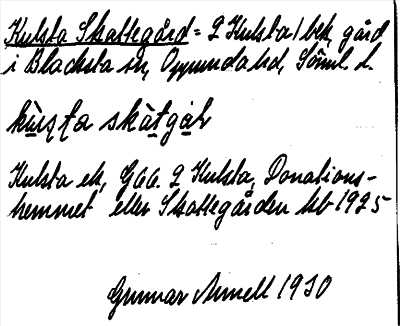 Kulsta Skattegård = 2 Kulsta 1 bek, gård
i Blacksta sn, Oppunda hd, Söml. l.
kùsṭa skàtgár
Kulsta ek, G66. 2 Kulsta, Donations-
hemmet eller Skattegården kb 1925
Gunnar Arnell 1930